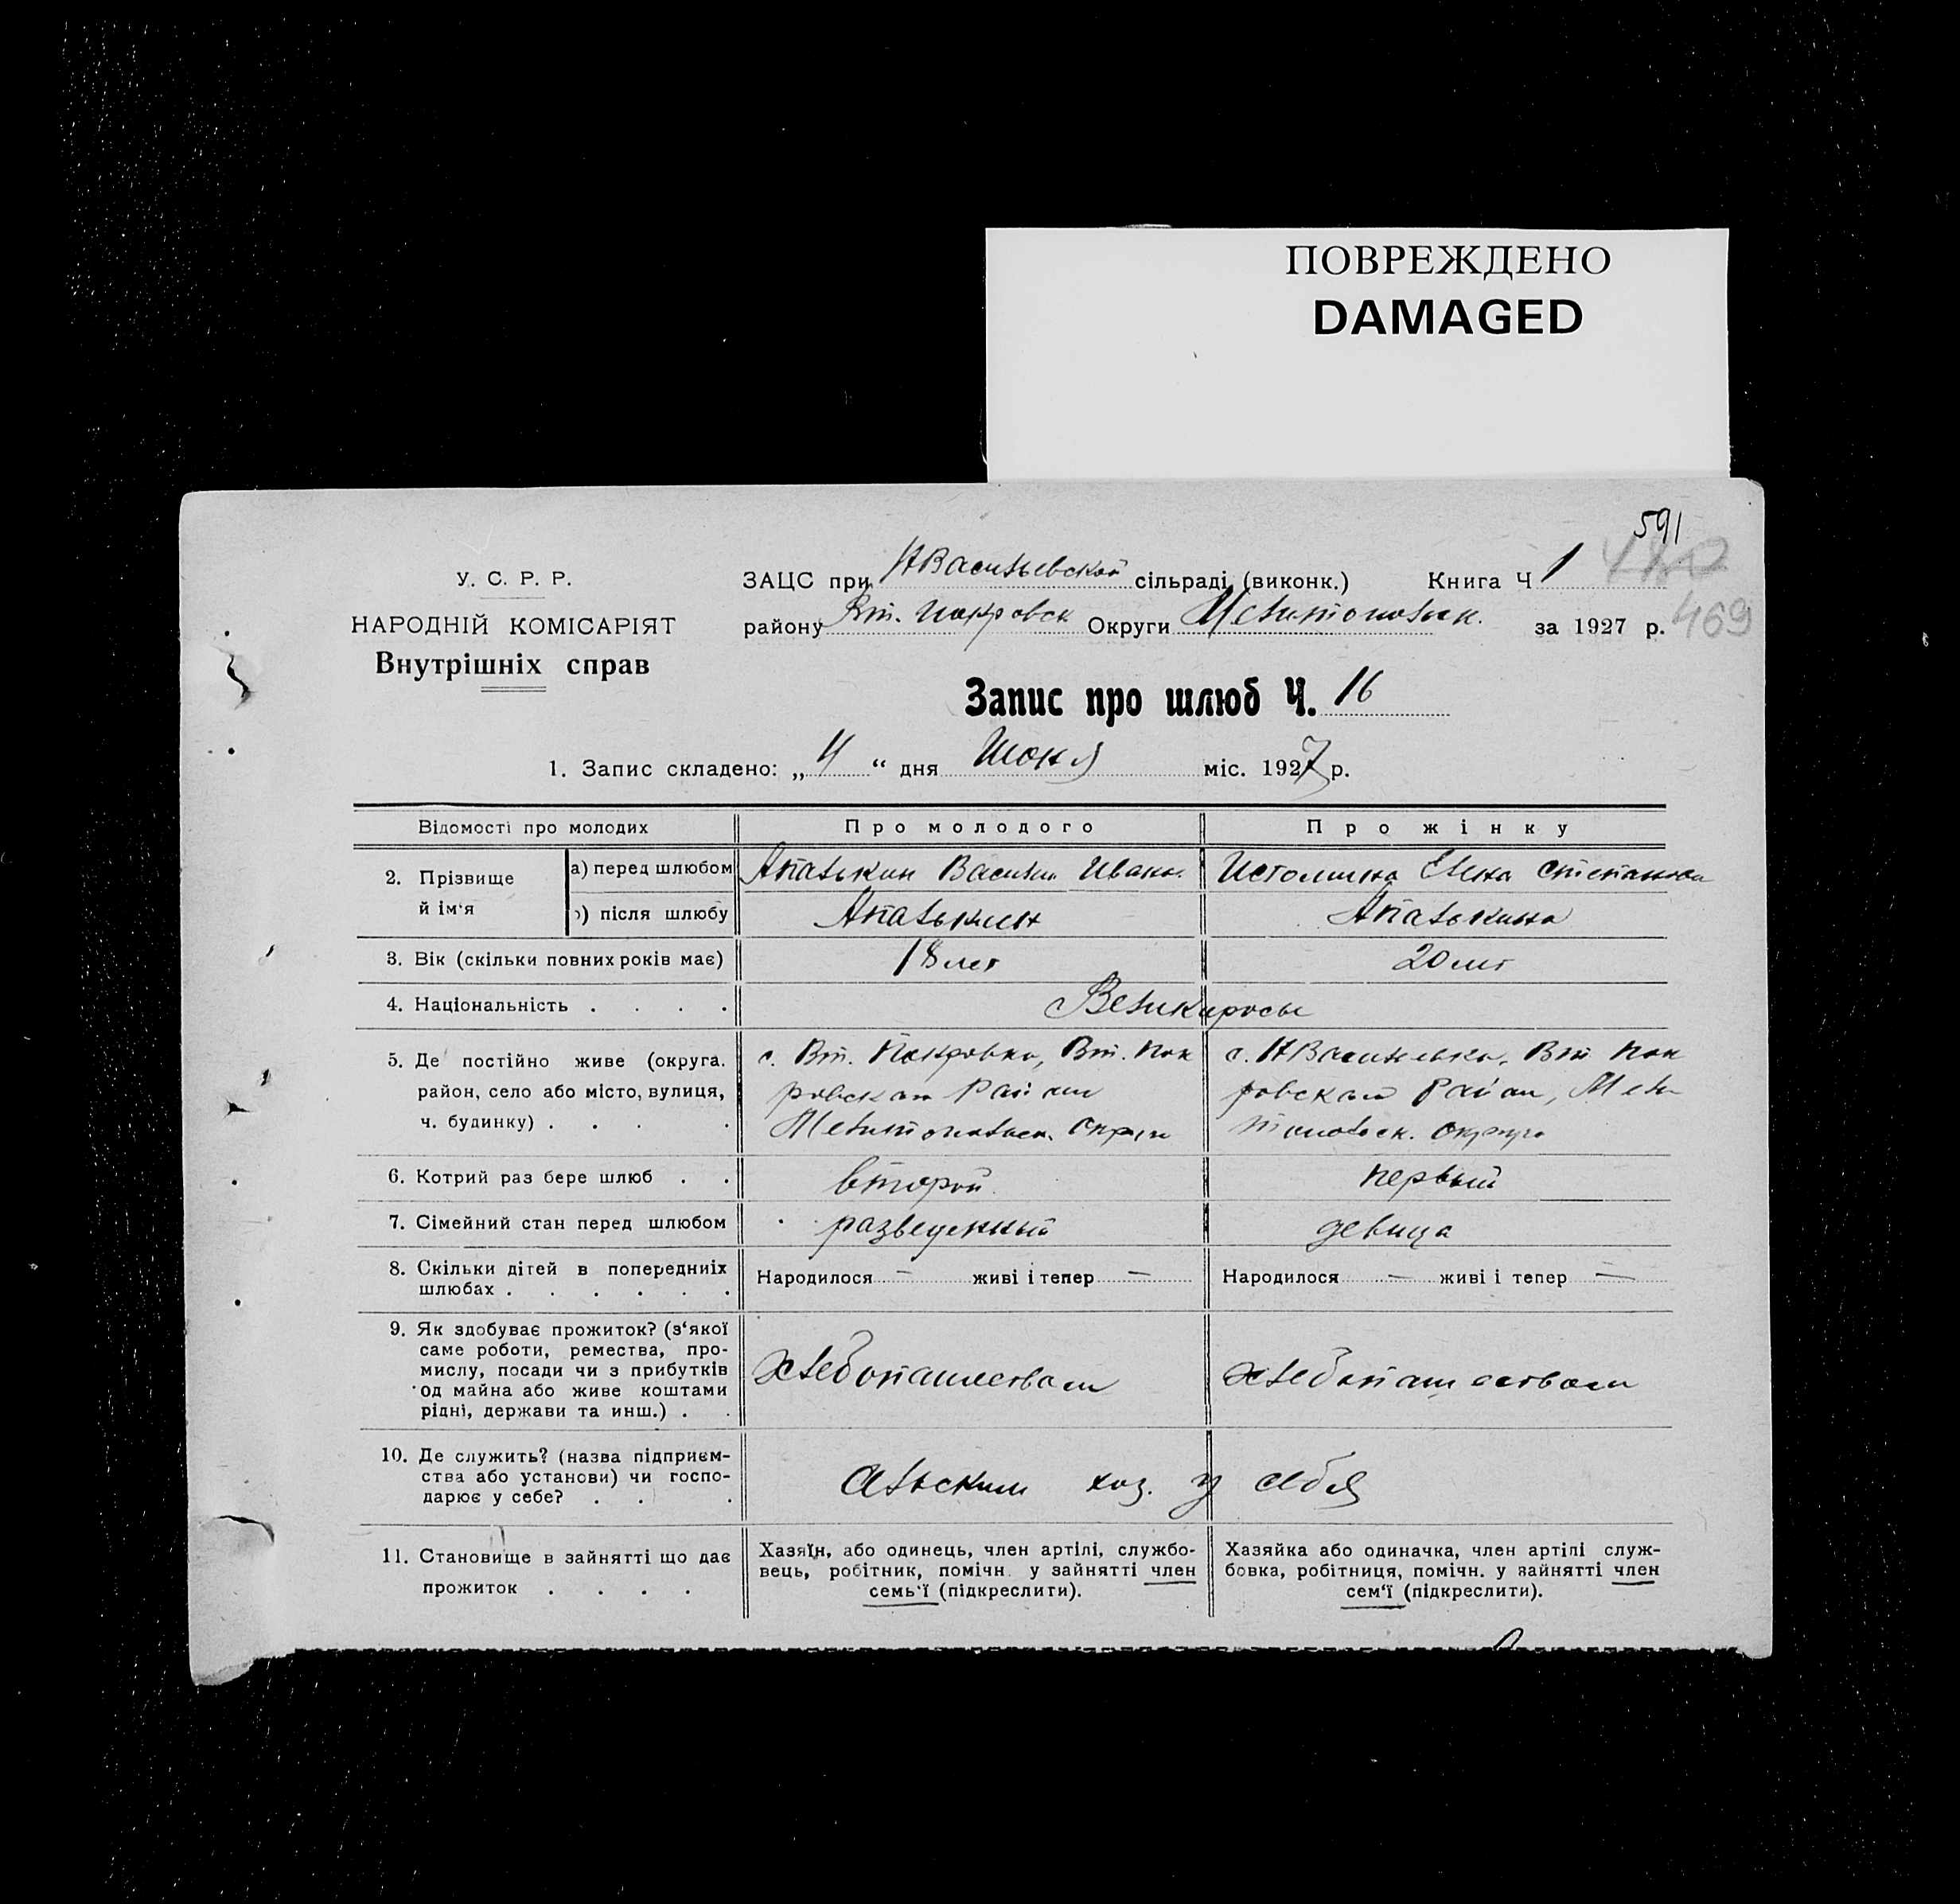 ПОВРЕЖДЕНО
DAMAGED
591
У. С. Р. Р.
НАРОДНІЙ КОМІСАРІЯТ
Внутрішніх справ
ЗАЦС при НВасильевской сільраді (виконк.) Книга Ч 1
району Вт. Покровск Округи Мелитопольск. за 1927 р. 469
Запис про шлюб Ч. 16
1. Запис складено: „ 4 “ дня Июня міс. 1927 р.
Відомості про молодих Про молодого Про жінку
2. Прізвище й ім‘я
а) перед шлюбом Апалькин Василий Иванн. Истомина Елена Степанова
) після шлюбу Апалькин Апалькина
3. Вік (скільки повних років має) 18 лет 20 лет
4. Національність . . . . Великиросы
5. Де постійно живе (округа. район, село або місто, вулиця, ч. будинку) . . . .
с. Вт. Покровка, Вт. Пок
ровского Район
Мелитопольск. Округи
с. НВасильевка, Вт Пок
ровского Район, Мели
топольск. округи
6. Котрий раз бере шлюб . . второй первый
7. Сімейний стан перед шлюбом разведенный девица
8. Скільки дітей в попередниіх шлюбах . . . . . .
Народилося — живі і тепер —
Народилося — живі і тепер —
9. Як здобуває прожиток? (з‘якої
саме роботи, ремества, про-
мислу, посади чи з прибутків
од майна або живе коштами
рідні, держави та инш.) . .
хлебопашеством хлебопашеством
10. Де служить? (назва підприєм-
ства або установи) чи госпо-
дарює у себе? . . .
сельским хоз. у себя
11. Становище в зайнятті що дає
прожиток . . . .
Хазяїн, або одинець, член артілі, службо-
вець, робітник, помічн. у зайнятті член
семь‘ї (підкреслити).
Хазяйка або одиначка, член артілі служ-
бовка, робітниця, помічн. у зайнятті член
сем‘ї (підкреслити).